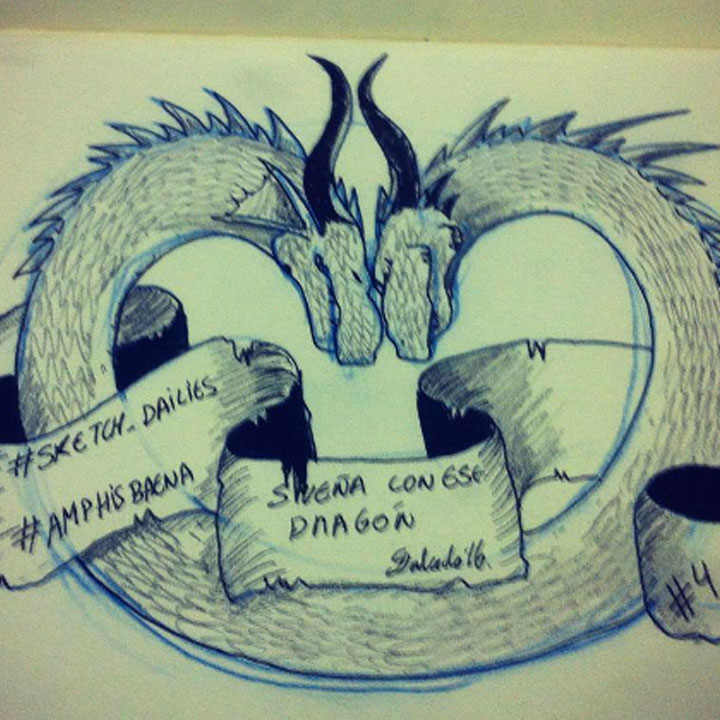 #SKETCH_DAILIES
#AMPHISBAENA
SUEÑA CON ESE
DRAGÓN
#4